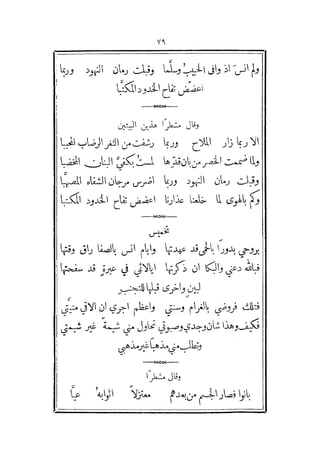 ٧٩
ولم انسَ اذ وافى الحبيبُ وسلَّما وقبلت رمان النهود وربما
اعضّض تفاح الخدود المكتبا
وقال مشطرًا هذين البيتين
الا ربما زار الملاح وربما رشفت من الثغر الرضاب المحببا
ولما ضممت الخصر من بان قدّها لمستُ بكفيَّ البنان المخضبا
وقبلت رمان النهود وربما اضرس مرجان الشفاه
وكم بالهوى لما خلعنا عذارنا اعضض تفاح الخدود المكتبا
تخميس
بروحي بدورًا بالحمى قد عهدتها وايام انس بالصفا راق وقتها
فبالله دعني والبكا ان ذكرتها ايالائمي في عبرةٍ قد سفحتها
لبينٍ واخرى قبلها للتجنب
فتلك فروضي بالغرام وسنتي واعظم اجري ان الاقي منيَّتي
فكيف وهذا شان وجدي وصبوتي تحاول مني شيمةً غير شيمتي
وتطلب مني مذهبًا غير مذهبي
وقال مشطرًا
بانوا فصار الجسم من بعدهم معتزلاً اثوابهُ عيَّا